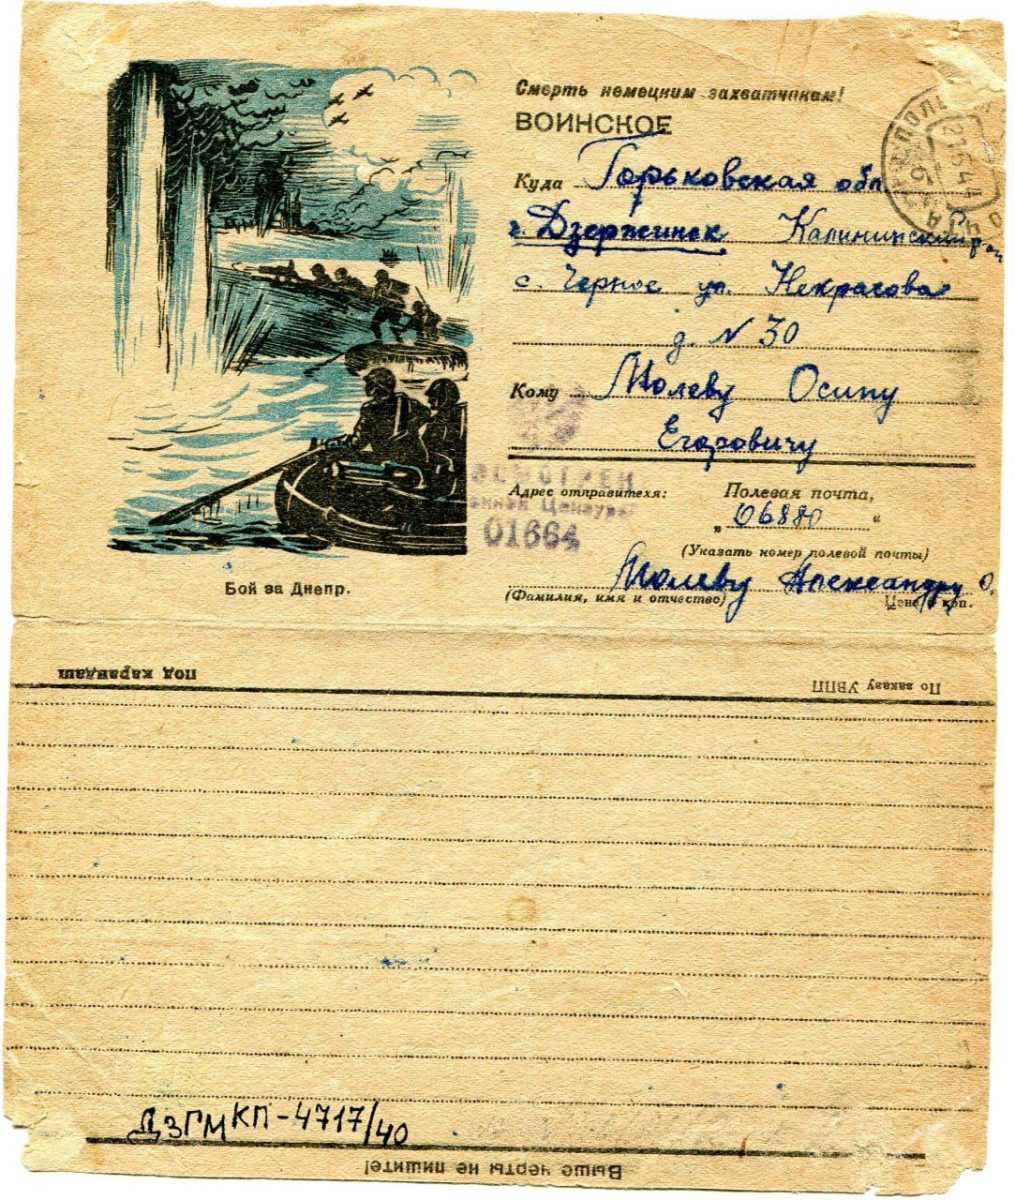 Смерть немецким захватчикам!
ВОИНСКОЕ
Куда Горьковская обл.
г. Дзержинск Калининский р-он
с. Черное ул. Некрасова
д. N 30
Кому Молеву Осипу
Егоровичу
Адрес отправителя: Полевая почта,
„ 06880 “
(Указать номер полевой почты)
Молеву Александру О.
(Фамилия, имя и отчество)
Цена 6 коп.
Бой за Днепр.
Военной Цензурой
01664
По заказу УВПП
под карандаш
Выше черты не пишите!
ДЗГМ КП-4717/40